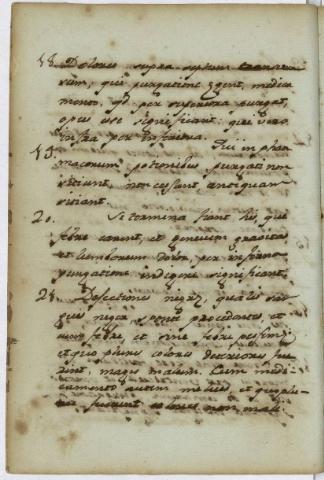 18. Dolores supra septum transver
sum, qui purgatione egent, medica
mento, qd per superiora purgat,
opus esse significant: qui vero
infra per inferna.
19. Qui in phar
macorum potionibus purgati non
sitiunt, non cessant antequam
sitiant.
20. Si tormina fiant iis, qui
febre carent, et genuum gravitas
et lumborum dolor, per inferna
purgatione indigere significant.
21. Defectiones nigræ, qualis san
guis niger, sponte procedentes et
cum febre et sine febre pessimæ
et quo plures colores deteriores fue
rint, magis malum. Cum medi
camento autem melius, et quo plu
res fuerint colores non mali.